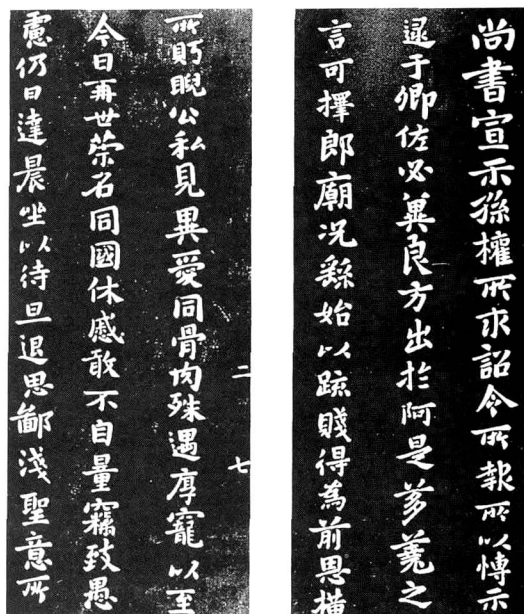 尚書宣示孫權所求詔令所報所以博示
逮于卿佐必冀良方出於阿是芻蕘之
言可擇郎廟況繇始以疏賤得為前恩橫
二七
所眄睨公私見異愛同骨肉殊遇厚寵以至
今日再世榮名同國休慼敢不自量竊致愚
慮仍日達晨坐以待旦退思鄙淺聖意所